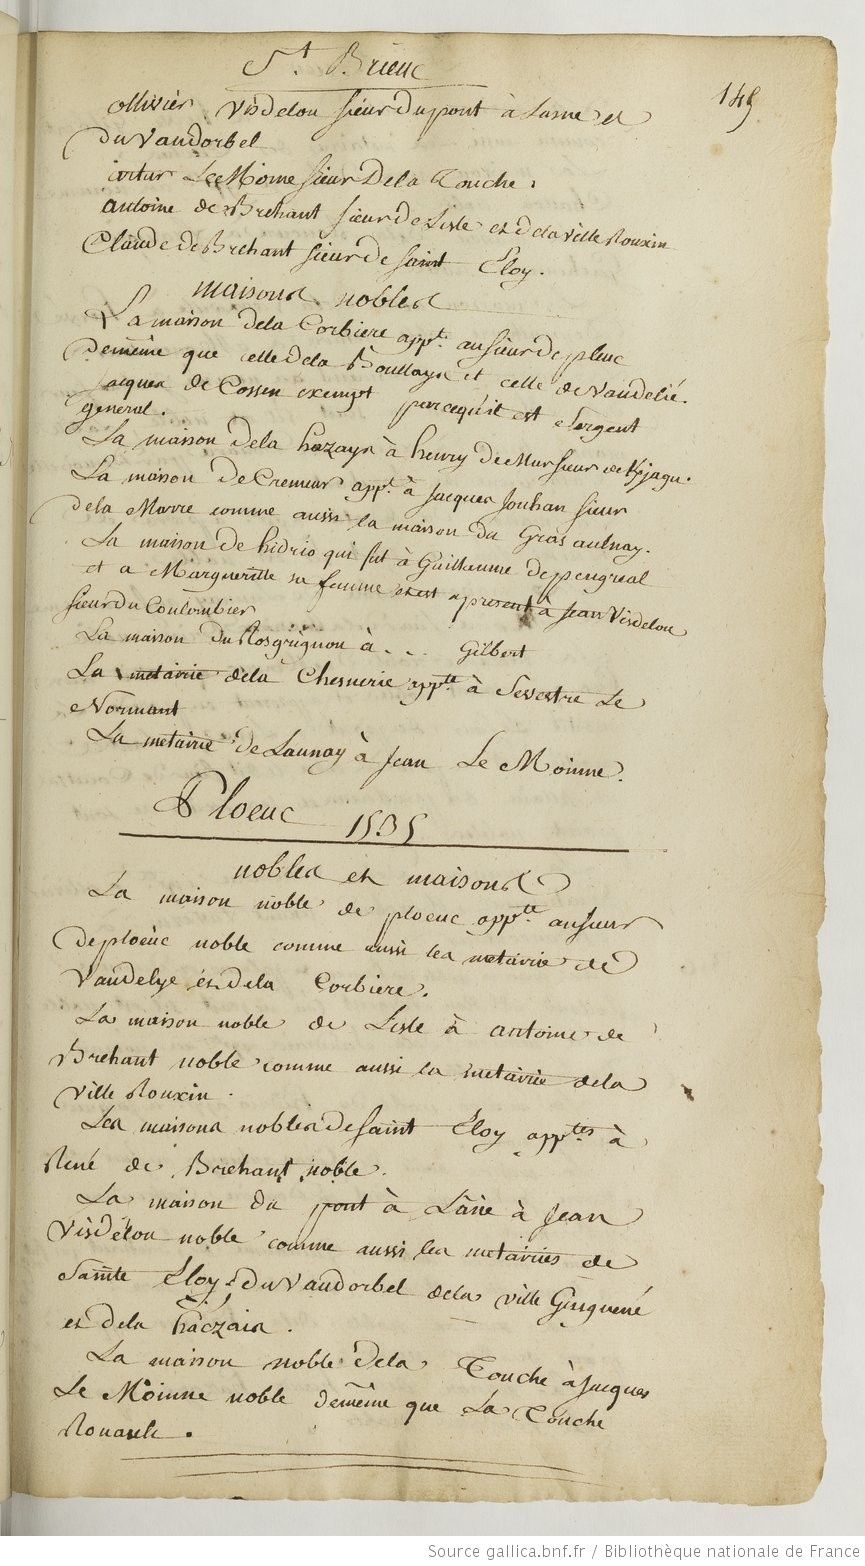 St. Brieuc
145
ollivier Visdelou sieur du pont à Lasne et
du Vaudorbel
artur Le Moine sieur De la Touche.
antoine de Brehant sieur de Lisle et de la ville Rouxin
Claude de Brehant sieur de saint Eloy.
maisons nobles
La maison de la Corbiere appt. au sieur de pleuc
demême que celle de la Boullaye et celle de Vaudelié.
Jacques de Cossen exempt parcequ'il est Sergent
general.
La maison de la hazaye à henry de sieur de Kjagu.
La maison De Cremeur appt. à Jacques Jouhan sieur
de la Marre comme aussi la maison du Gras aulnay.
La maison de hidrio qui fut à Guillaume de pengreal
et a Margueritte sa femme et est apresent à Jean Visdelou
sieur du Coulombier
La maison Du Rosgrignon à . . . Gilbert
La metairie de la Chesnerie appte à Sevestre Le
Normant
La metairie de Launay à Jean Le Moinne.
Ploeuc 1535
nobles et maisons
La maison noble de ploeuc appte au sieur
de ploeuc noble comme aussi les metairie de
Vaudelye et de la Corbiere.
La maison noble de Lisle à antoine de
Brehant noble comme aussi la metairie de la
ville Rouxin.
Les maisons nobles de saint Eloy apptes à
René de Brehant noble.
La maison du pont à Lâne à Jean
Visdelou noble comme aussi les metairies de
Sainte Eloy, du Vaudorbel de la ville Guyuené
et de la haczais.
La maison noble de la Touche à Jacques
Le Moinne noble demême que La Touche
Rouault.
Source gallica.bnf.fr / Bibliothèque nationale de France